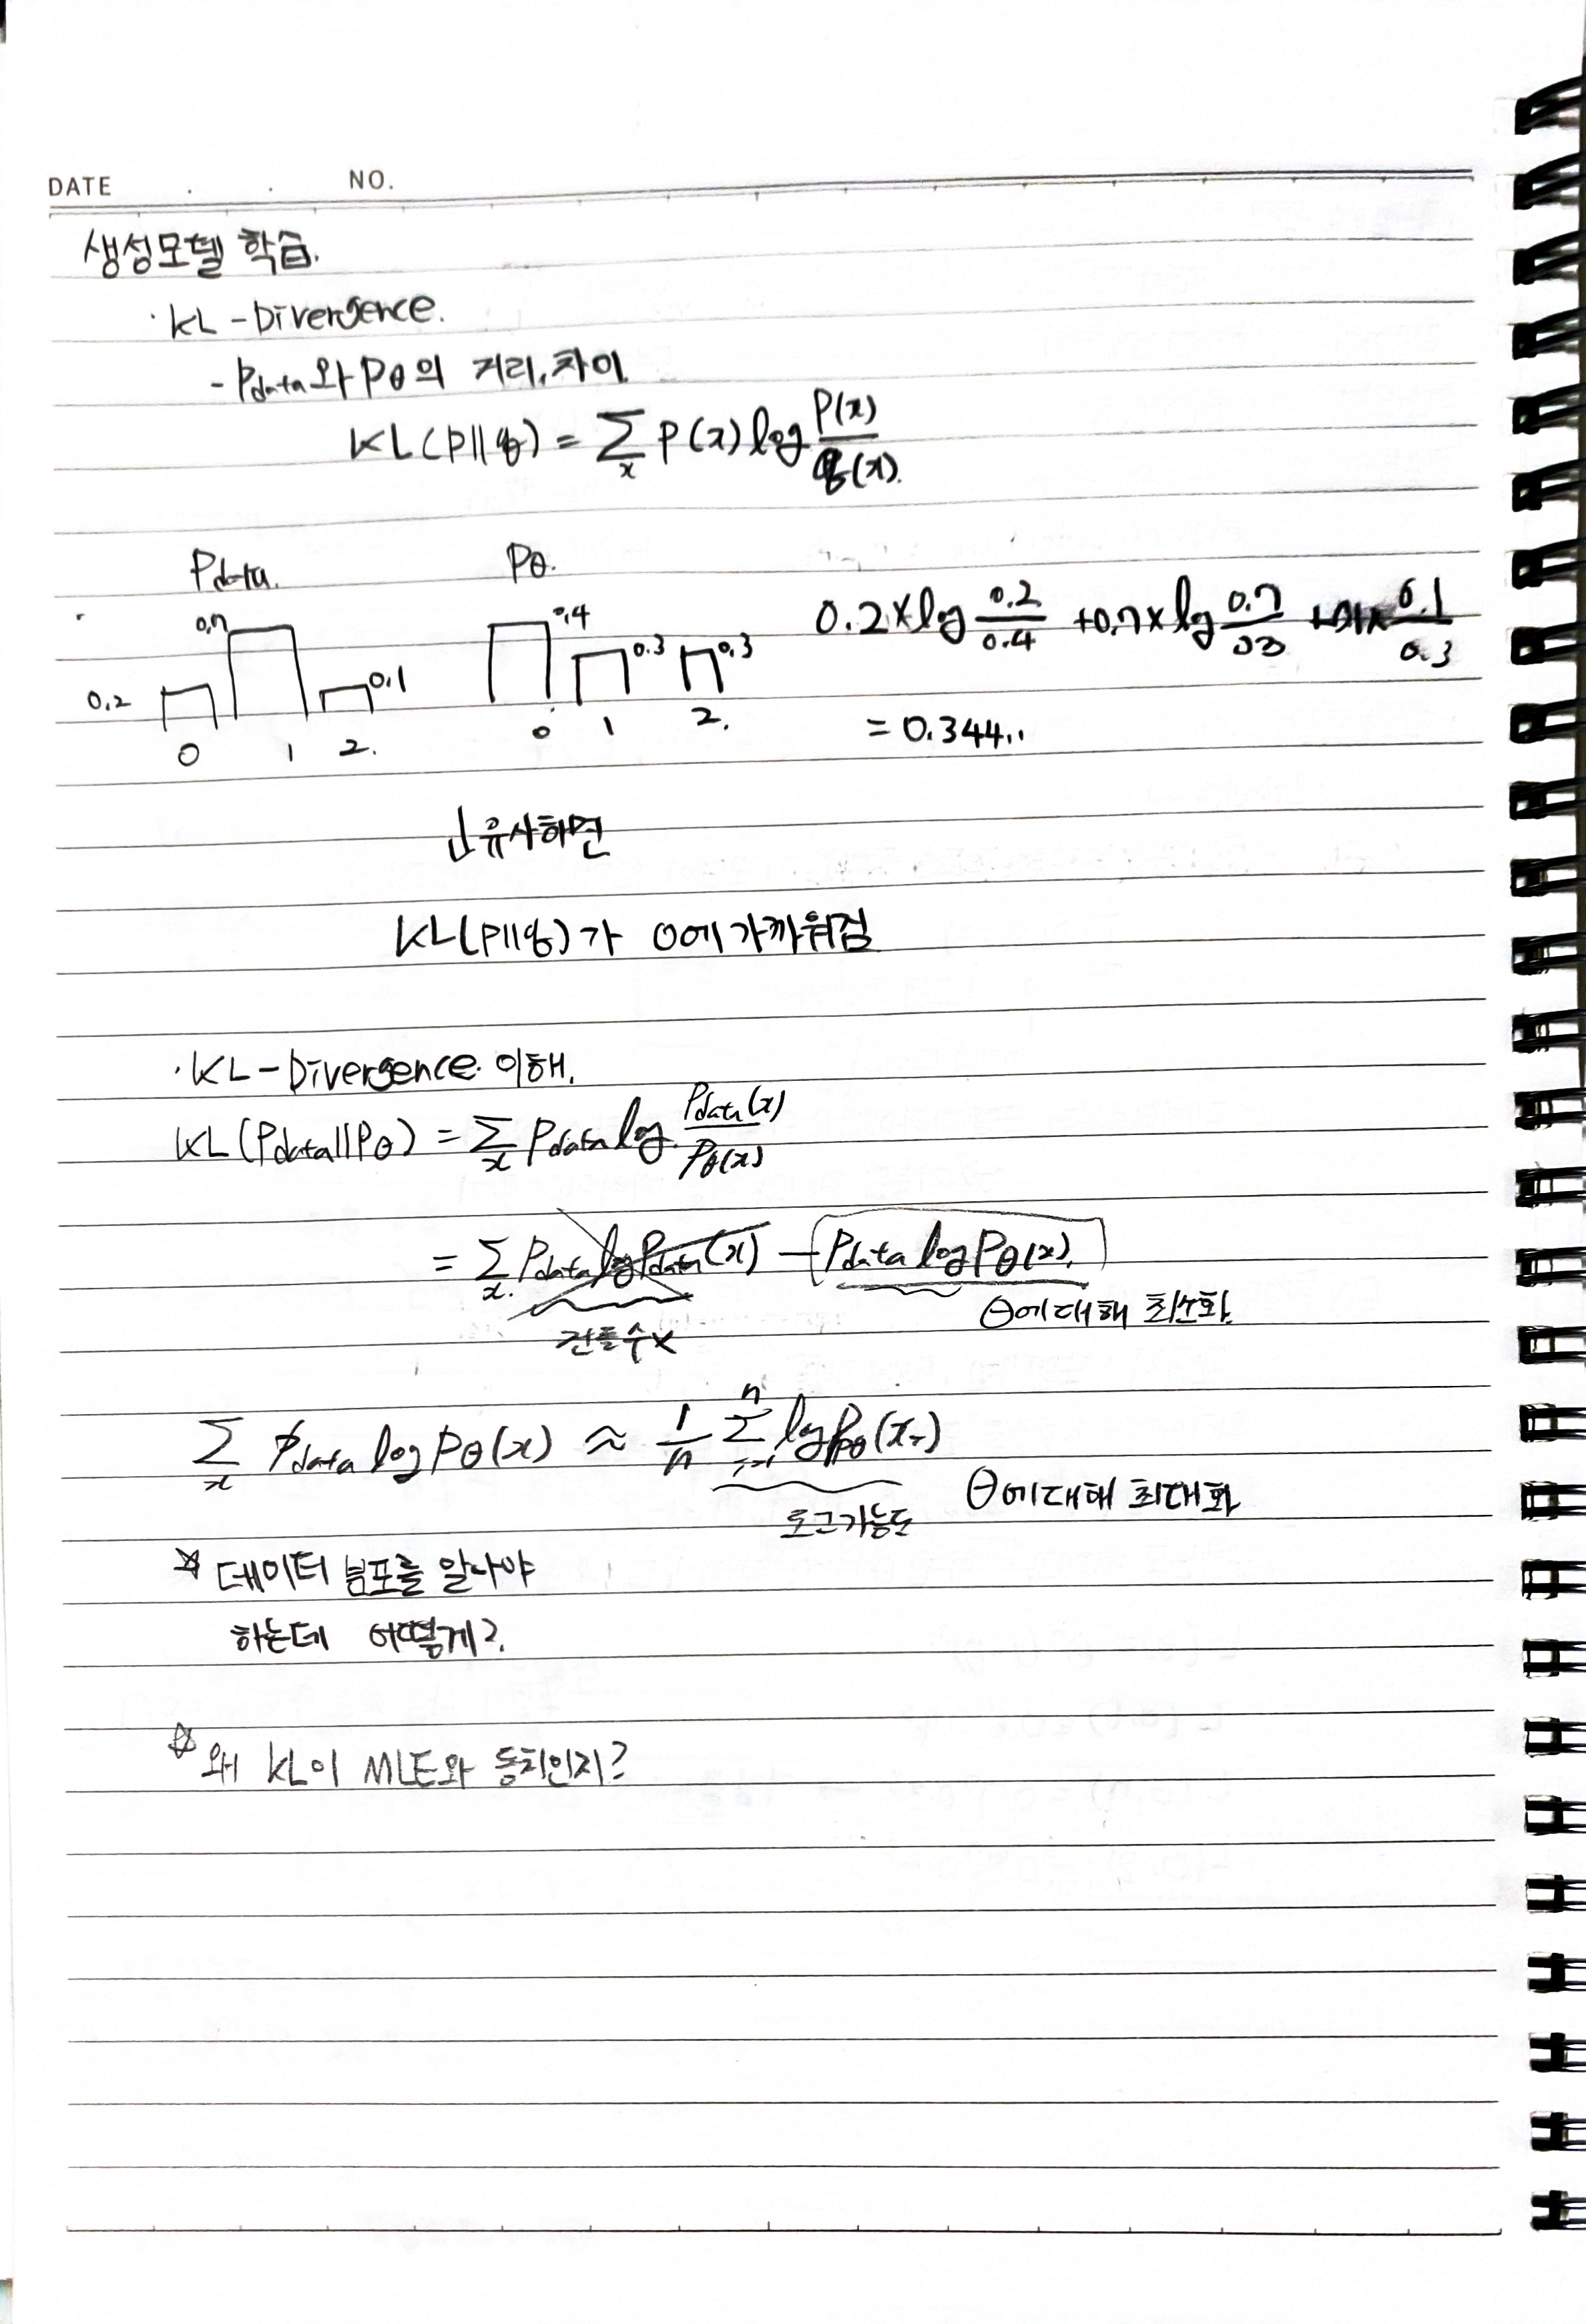 DATE . . NO.
생성모델 학습.
· KL-Divergence.
- Pdata와 Pθ의 거리, 차이.
KL(P||q) = Σx P(x) log P(x)/q(x).
Pdata. Pθ.
0.2 0.7 0.1 0.4 0.3 0.3 0.2×log 0.2/0.4 +0.7×log 0.7/0.3 +0.1× 0.1/0.3
0 1 2. 0 1 2. = 0.344..
↓ 유사하면
KL(P||q)가 0에 가까워짐
· KL-Divergence. 이해.
KL(Pdata||Pθ) = Σx Pdata log Pdata(x)/Pθ(x)
= Σx. Pdata log Pdata(x) - Pdata log Pθ(x).
건들 수 x θ에 대해 최소화.
Σx Pdata log Pθ(x) ≈ 1/n Σ i=1 n log Pθ(xi)
로그가능도 θ에 대해 최대화
☆ 데이터 분포를 알아야
하는데 어떻게?.
☆ 왜 KL이 MLE와 동치인지?